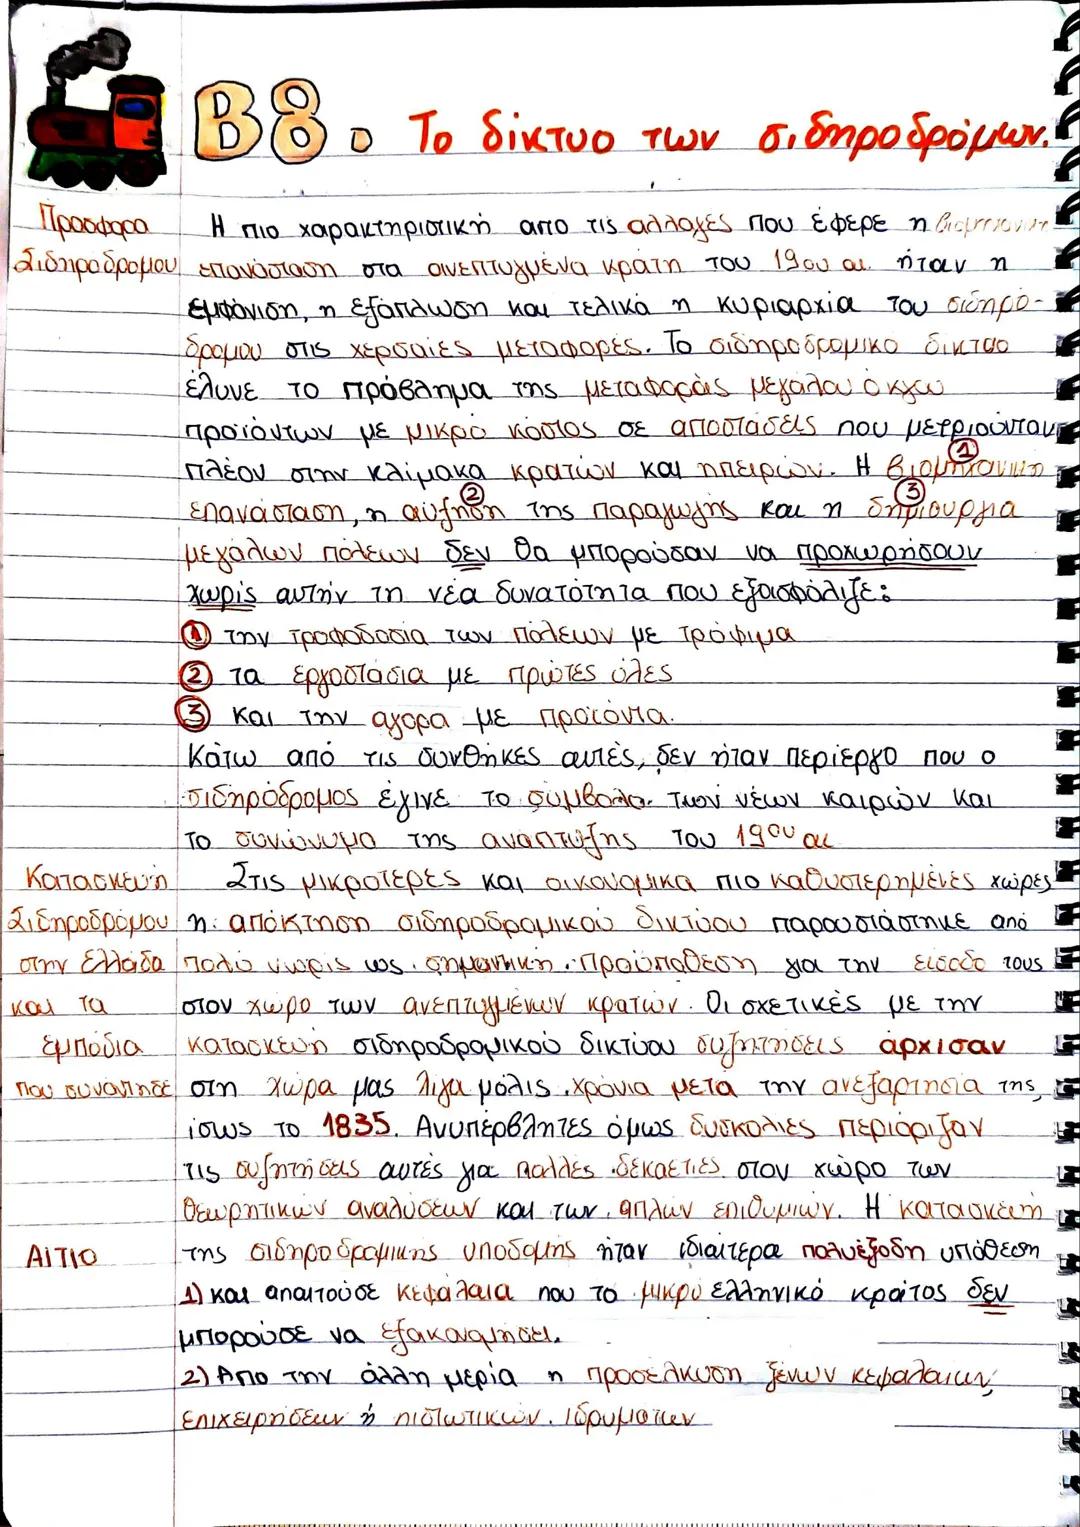 Β8. Το δίκτυο των σιδηροδρόμων.
Προσφορα
Σιδηροδρομου
Η πιο χαρακτηριστική απο τις αλλαγές που έφερε η βιομηχανικη
επανάσταση στα ανεπτυγμένα κράτη του 19ου αι. ήταν η
εμφάνιση, η εξάπλωση και τελικά η κυριαρχία του σιδηρό-
δρομου στις χερσαίες μεταφορές. Το σιδηροδρομικό δίκτυο
έλυνε το πρόβλημα της μεταφοράς μεγάλου όγκου
προϊόντων με μικρό κόστος σε αποστάσεις που μετριούνταν
πλέον στην κλίμακα κρατών και ηπείρων. Η βιομηχανικη ①
επανάσταση, η αύξηση ② της παραγωγής και η δημιουργία ③
μεγάλων πόλεων δεν θα μπορούσαν να προχωρήσουν
χωρίς αυτήν τη νέα δυνατότητα που εξασφάλιζε:
① την τροφοδοσία των πόλεων με τρόφιμα
② τα εργοστάσια με πρώτες ύλες
③ και την αγορα με προϊόντα.
Κάτω από τις συνθήκες αυτές, δεν ήταν περίεργο που ο
σιδηρόδρομος έγινε το σύμβολο των νέων καιρών και
το συνώνυμο της ανάπτυξης του 19ου αι
Κατασκευή
Σιδηροδρόμου
στην Ελλάδα
και τα
εμπόδια
που συνάντησε
Στις μικρότερες και οικονομικα πιο καθυστερημένες χώρες
η απόκτηση σιδηροδρομικού δικτύου παρουσιάστηκε από
πολύ νωρίς ως σημαντική προϋπόθεση για την είσοδο τους
στον χώρο των ανεπτυγμένων κρατών. Οι σχετικές με την
κατασκευή σιδηροδρομικού δικτύου συζητήσεις άρχισαν
στη χώρα μας λίγα μόλις χρόνια μετα την ανεξαρτησία της,
ίσως το 1835. Ανυπέρβλητες όμως δυσκολίες περιόριζαν
τις συζητήσεις αυτές για πολλές δεκαετίες στον χώρο των
θεωρητικών αναλύσεων και των απλών επιθυμιών. Η κατασκευή
Αίτιο
της σιδηροδρομικής υποδομής ήταν ιδιαίτερα πολυέξοδη υπόθεση
1) και απαιτούσε κεφάλαια που το μικρό ελληνικό κράτος δεν
μπορούσε να εξοικονομήσει.
2) Απο την άλλη μερία η προσέλκυση ξένων κεφαλαίων,
επιχειρήσεων ή πιστωτικών ιδρυμάτων